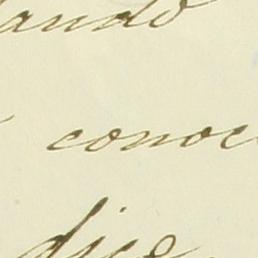 ando
conoc
dice